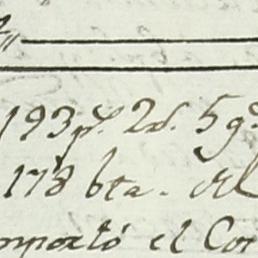 193 p.s 2 d.s 5 g.s
178 bta. Al
importó el Cor